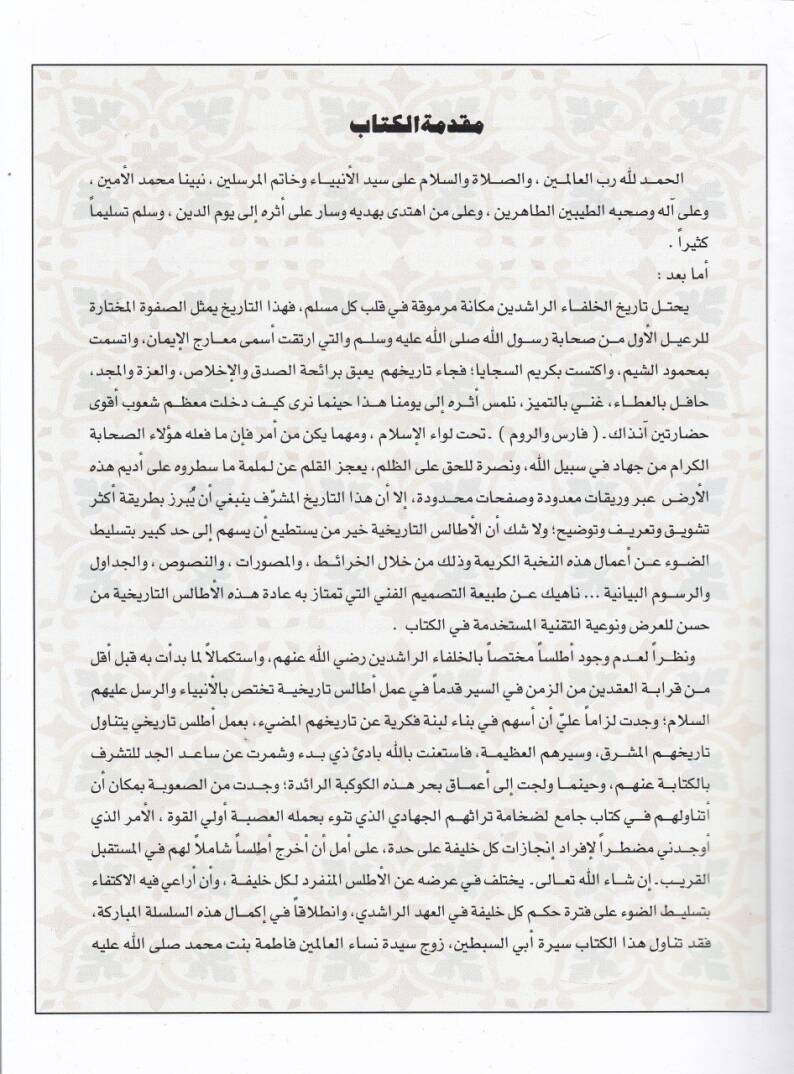 مقدمة الكتاب
الحمد لله رب العالمين ، والصلاة والسلام على سيد الأنبياء وخاتم المرسلين ، نبينا محمد الأمين ،
وعلى آله وصحبه الطيبين الطاهرين ، وعلى من اهتدى بهديه وسار على أثره إلى يوم الدين ، وسلم تسليماً
كثيراً .
أما بعد :
يحتل تاريخ الخلفاء الراشدين مكانة مرموقة في قلب كل مسلم، فهذا التاريخ يمثل الصفوة المختارة
للرعيل الأول من صحابة رسول الله صلى الله عليه وسلم والتي ارتقت أسمى معارج الإيمان، واتسمت
بمحمود الشيم، واكتست بكريم السجايا؛ فجاء تاريخهم يعبق برائحة الصدق والإخلاص، والعزة والمجد،
حافل بالعطاء، غني بالتميز، نلمس أثره إلى يومنا هذا حينما نرى كيف دخلت معظم شعوب أقوى
حضارتين آنذاك ـ ( فارس والروم ) ـ تحت لواء الإسلام ، ومهما يكن من أمر فإن ما فعله هؤلاء الصحابة
الكرام من جهاد في سبيل الله، ونصرة للحق على الظلم، يعجز القلم عن لملمة ما سطروه على أديم هذه
الأرض عبر وريقات معدودة وصفحات محدودة، إلا أن هذا التاريخ المشرّف ينبغي أن يُبرز بطريقة أكثر
تشويق وتعريف وتوضيح؛ ولا شك أن الأطالس التاريخية خير من يستطيع أن يسهم إلى حد كبير بتسليط
الضوء عن أعمال هذه النخبة الكريمة وذلك من خلال الخرائط ، والمصورات ، والنصوص ، والجداول
والرسوم البيانية ... ناهيك عن طبيعة التصميم الفني التي تمتاز به عادة هذه الأطالس التاريخية من
حسن للعرض ونوعية التقنية المستخدمة في الكتاب .
ونظراً لعدم وجود أطلساً مختصاً بالخلفاء الراشدين رضي الله عنهم، واستكمالاً لما بدأت به قبل أقل
من قرابة العقدين من الزمن في السير قدماً في عمل أطالس تاريخية تختص بالأنبياء والرسل عليهم
السلام؛ وجدت لزاماً عليّ أن أسهم في بناء لبنة فكرية عن تاريخهم المضيء، بعمل أطلس تاريخي يتناول
تاريخهم المشرق، وسيرهم العظيمة، فاستعنت بالله بادئ ذي بدء وشمرت عن ساعد الجد للتشرف
بالكتابة عنهم، وحينما ولجت إلى أعماق بحر هذه الكوكبة الرائدة؛ وجدت من الصعوبة بمكان أن
أتناولهم في كتاب جامع لضخامة تراثهم الجهادي الذي تنوء بحمله العصبة أولي القوة ، الأمر الذي
أوجدني مضطراً لإفراد إنجازات كل خليفة على حدة، على أمل أن أخرج أطلساً شاملاً لهم في المستقبل
القريب ـ إن شاء الله تعالى ـ يختلف في عرضه عن الأطلس المنفرد لكل خليفة ، وأن أراعي فيه الاكتفاء
بتسليط الضوء على فترة حكم كل خليفة في العهد الراشدي، وانطلاقاً في إكمال هذه السلسلة المباركة،
فقد تناول هذا الكتاب سيرة أبي السبطين، زوج سيدة نساء العالمين فاطمة بنت محمد صلى الله عليه